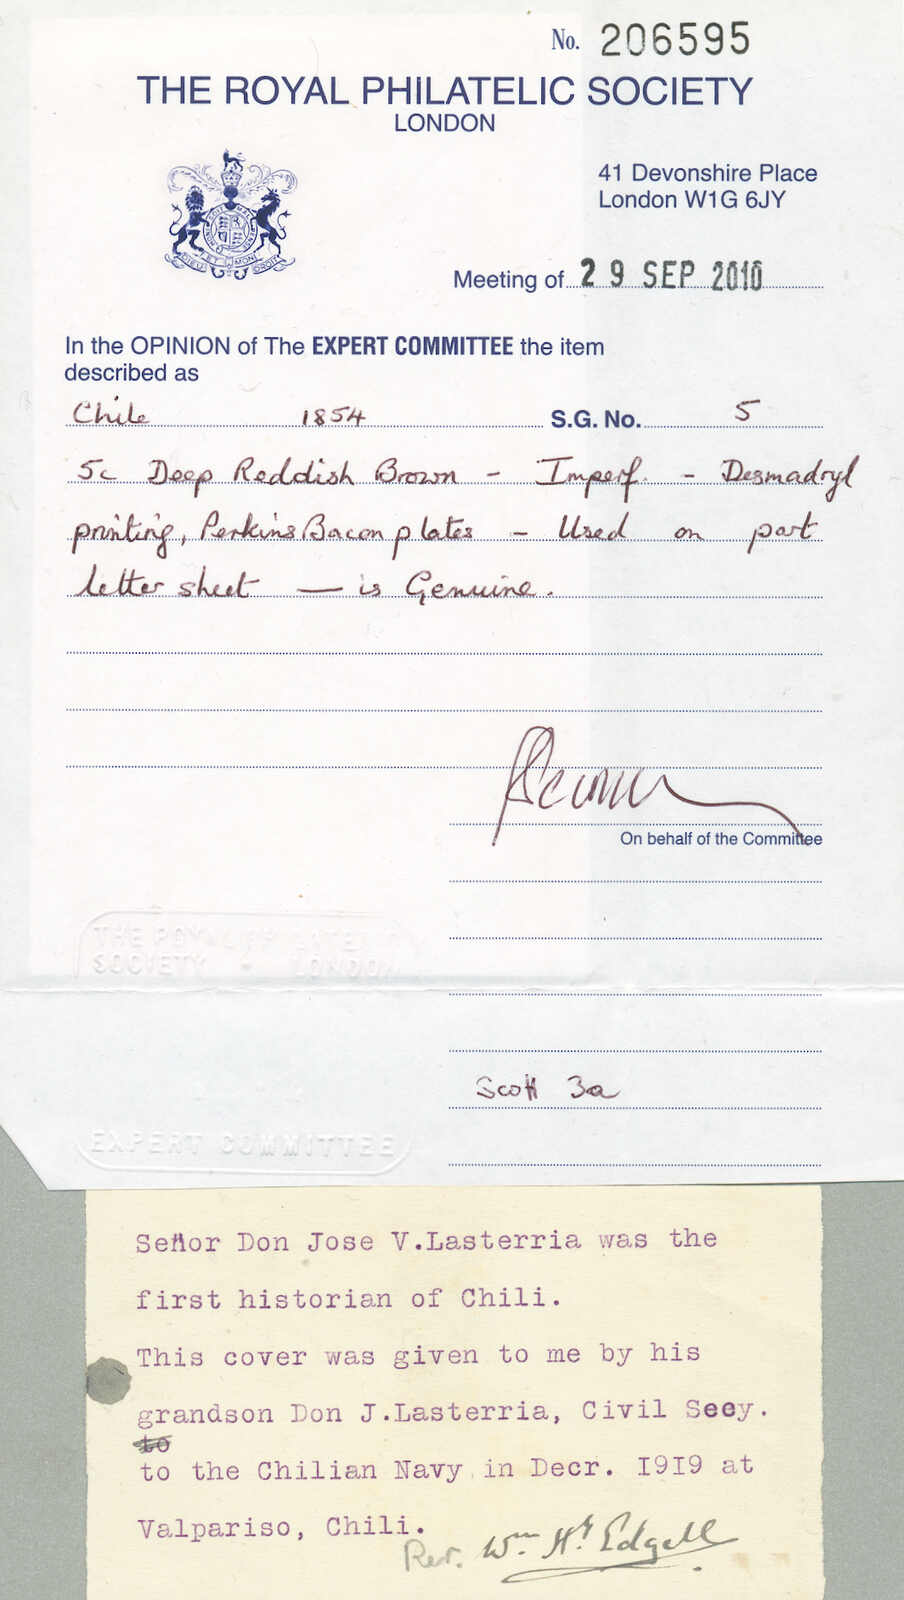 No. 206595
THE ROYAL PHILATELIC SOCIETY
LONDON
41 Devonshire Place
London W1G 6JY
DIEU ET MON DROIT
Meeting of 29 SEP 2010
In the OPINION of The EXPERT COMMITTEE the item
described as
Chile 1854 S.G. No. 5
5c Deep Reddish Brown - Imperf. - Desmadryl
printing, Perkins Bacon plates - Used on part
letter sheet — is Genuine.
On behalf of the Committee
THE ROYAL PHILATELIC
SOCIETY - LONDON
Scott 3a
EXPERT COMMITTEE
Señor Don Jose V.Lasterria was the
first historian of Chili.
This cover was given to me by his
grandson Don J.Lasterria, Civil Seey.
to
to the Chilian Navy in Decr. 1919 at
Valpariso, Chili.
Rev. Wm Ht Edgell